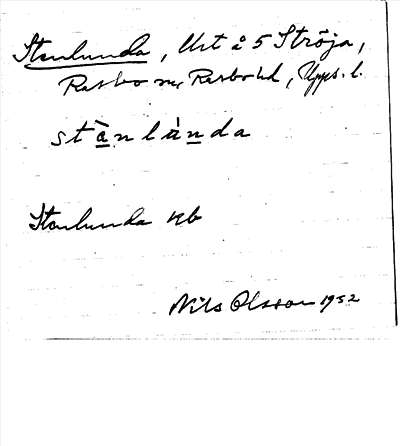 Stenlunda, Urt å 5 Ströja,
Rasbo sn, Rasbo hd, Upps. l.
stä̀nlȧ̀nda
Stenlunda kb
Nils Olsson 1932